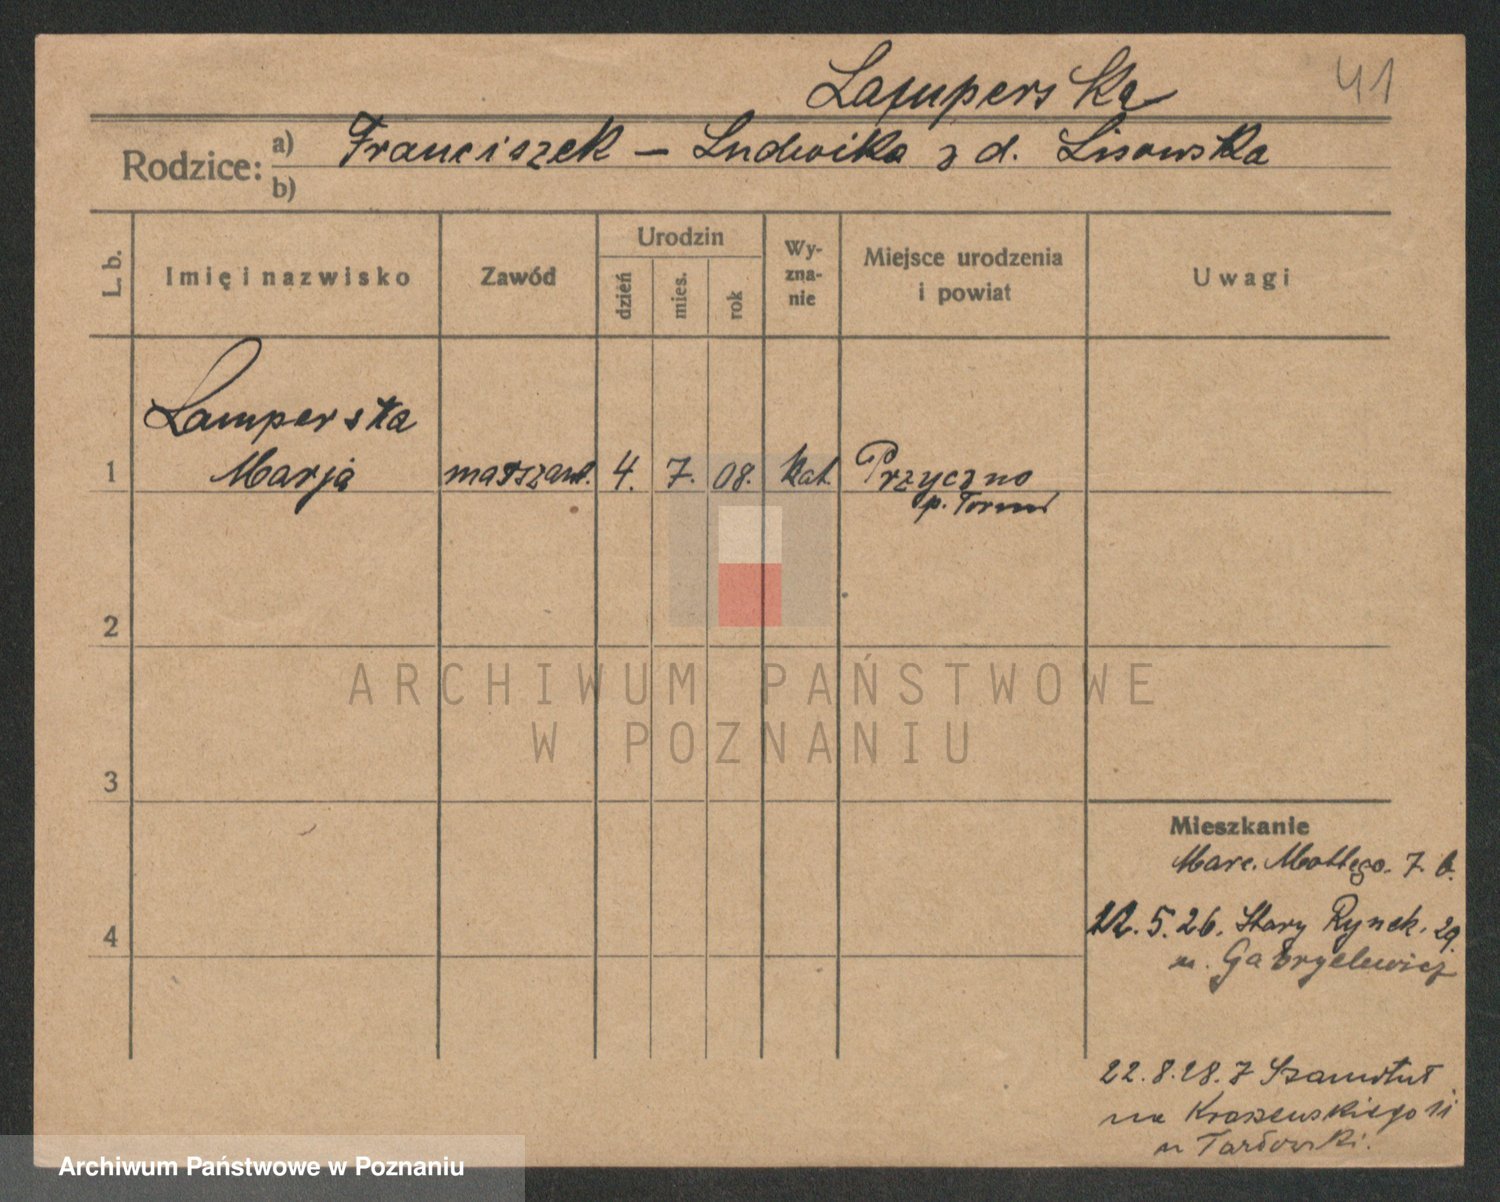 41
Lamperska
Rodzice: a) Franciszek – Ludwika z d. Lisowska
b)
L. b.
Imię i nazwisko
Zawód
Urodzin
dzień
mies.
rok
Wy-
zna-
nie
Miejsce urodzenia
i powiat
Uwagi
Lamperska
1 Marja 4. 7. 08. kat. Przyczno
p. Toruń
2
3
4
Mieszkanie
Marc. Mottego. 7.
22.5.26. Stary Rynek. 29.
u. Gabryelewicz
22.8.28. z Szamotuł
na Kraszewskiego 11
u Tarłowski.
ARCHIWUM PAŃSTWOWE
W POZNANIU
Archiwum Państwowe w Poznaniu